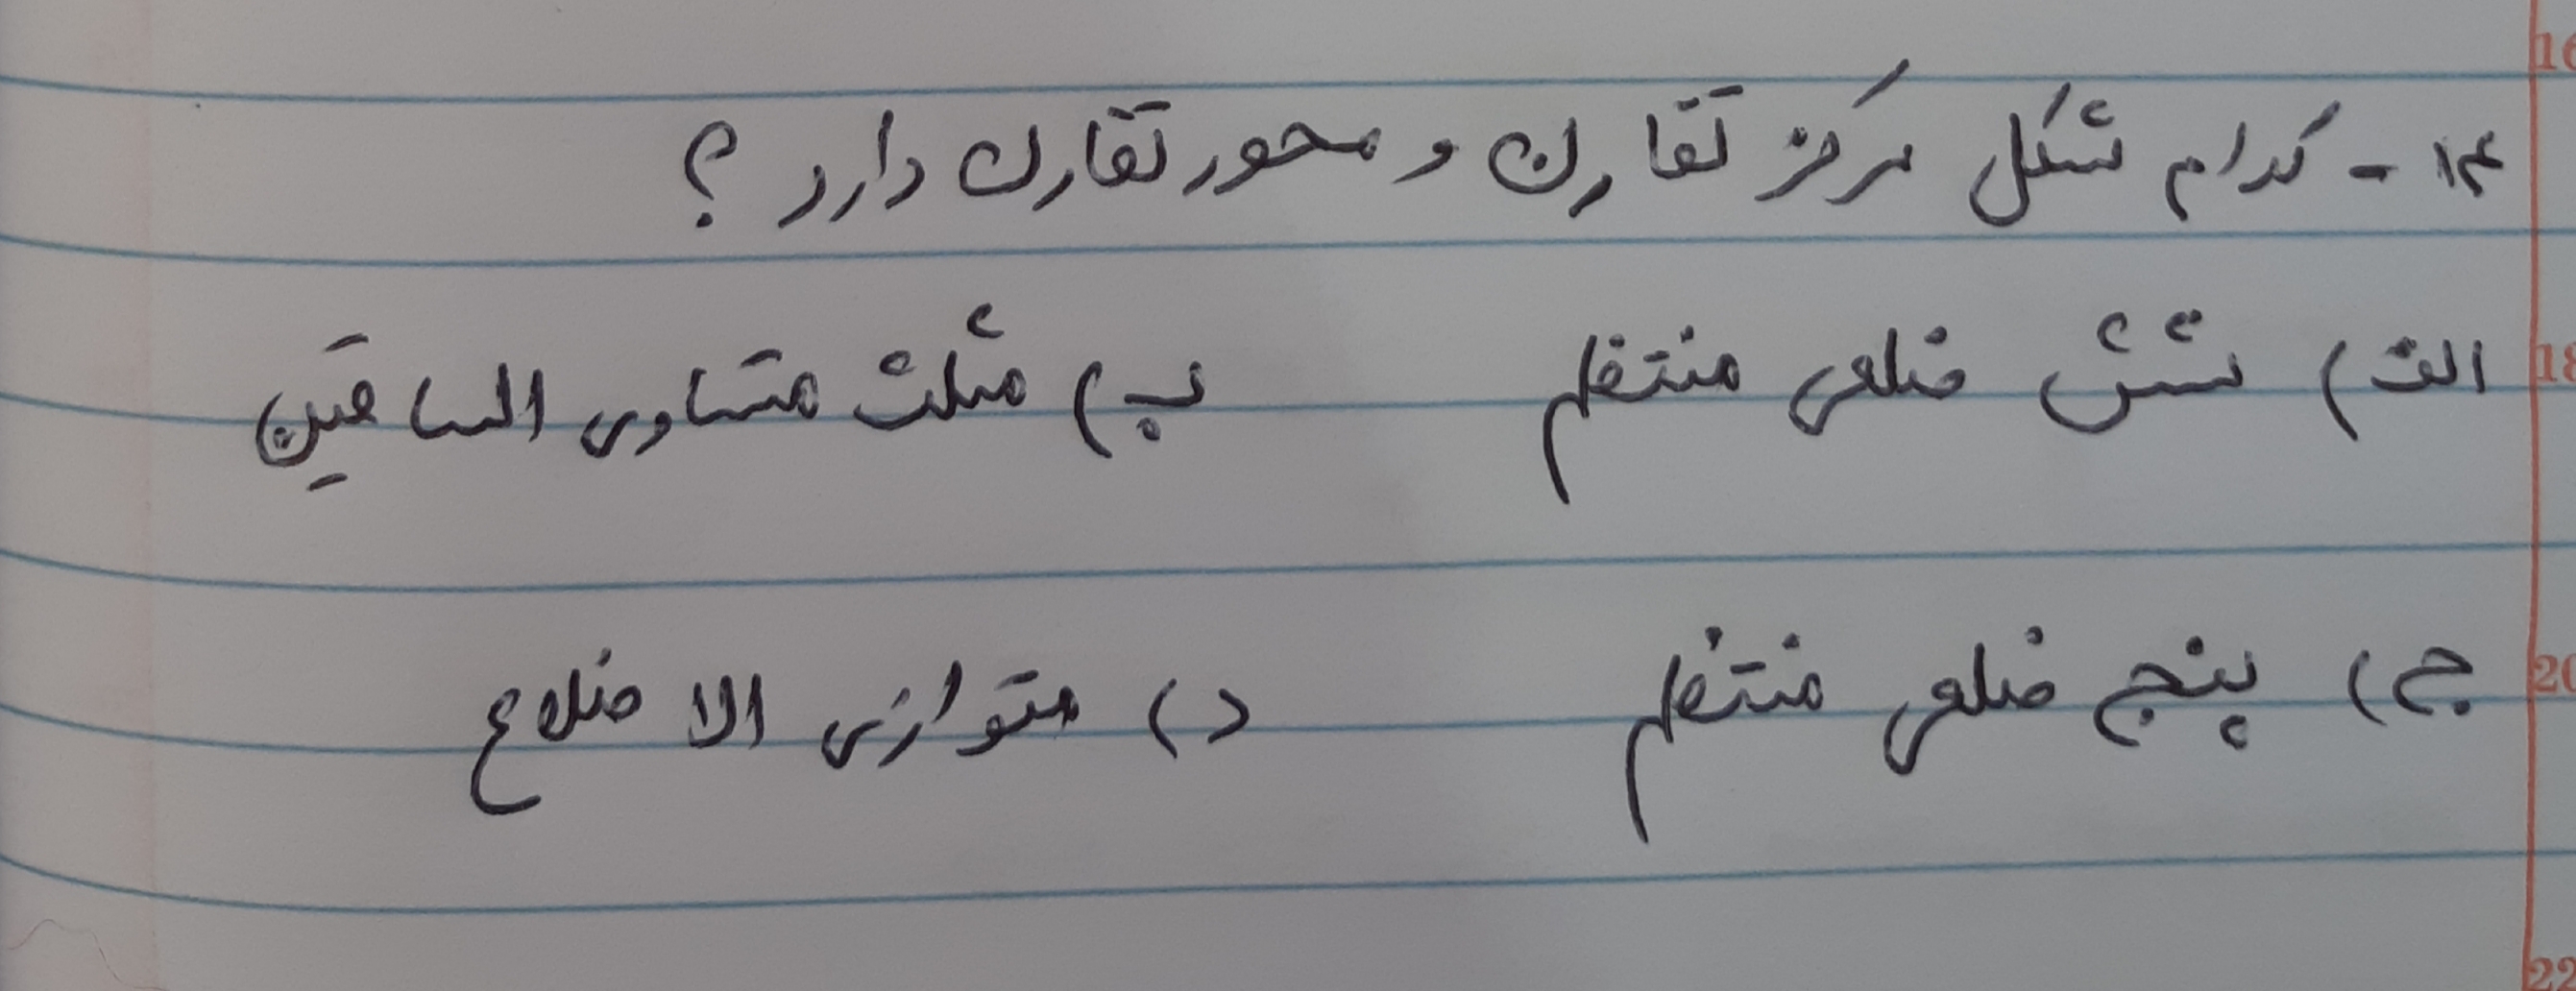 ۱۴- کدام شکل مرکز تقارن و محور تقارن دارد؟
الف) شش ضلعی منتظم ب) مثلث متساوی الساقین
ج) پنج ضلعی منتظم د) متوازی الاضلاع
16
18
20
22